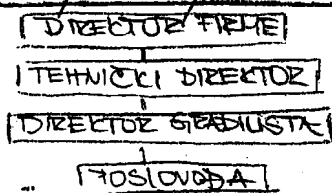 DIREKTOR FIRME
TEHNIČKI DIREKTOR
DIREKTOR GRADILIŠTA
POSLOVOĐA